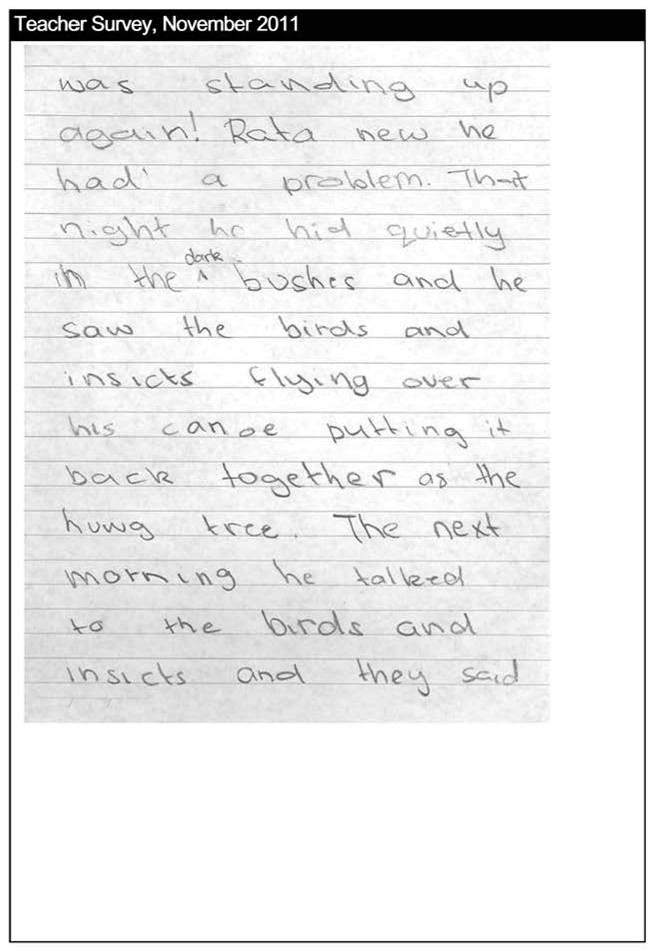 Teacher Survey, November 2011
was standing up
again! Rata new he
had a problem. That
night he hid quietly
dark
in the ^ bushes and he
saw the birds and
insicts flying over
his canoe putting it
back together as the
huwg tree. The next
morning he talked
to the birds and
insicts and they said